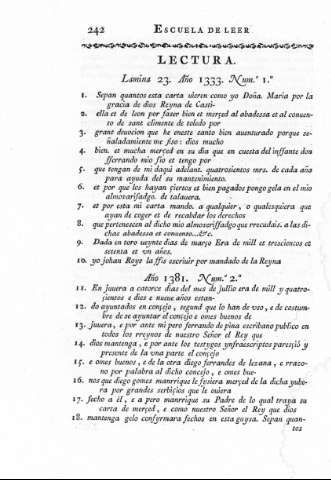 242 ESCUELA DE LEER
LECTURA.
Lamina 23. Año 1333. Num.º 1.º
1. Sepan quantos esta carta uieren como yo Doña. Maria por la
gracia de dios Reyna de Casti-
2. ella et de leon por faser bien et merçed al abadessa et al conuen-
to de sant climente de toledo por
3. grant deuocion que he eneste santo bien auenturado porque se-
ñaladamiente me fiso: dios mucho
4. bien. et mucha merçed en su dia que en cuesta del inffante don
fferrando mio fio et tengo por
5. que tengan de mi daqui adelant. quatrosientos mrs. de cada año
para ayuda del su mantenimiento.
6. et por que los hayan çiertos et bien pagados pongo gela en el mio
almosarifadgo. de talauera.
7. et por esta mi carta mando. a qualquier, o qualesquiera que
ayan de coger et de recabdar los derechos
8. que pertenescen al dicho mio almosriffadgo que rrecudais. a las di-
chas abadessa et conuento...&c.
9. Dada en toro ueynte dias de março Era de mill et tresçientos et
setenta et un años.
10. yo johan Royz la ffis escriuir por mandado de la Reyna
Año 1381. Num.º 2.º
11. En jouera a catorce dias del mes de jullio era de mill y quatro-
sientos e dies e nueue años estan-
12. do ayuntados en conçejo, segund que lo han de vso, e de costum-
bre de se ayuntar el conçejo e omes buenos de
13. juuera, e por ante mi pero ferrando de pina escribano publico en
todos los rreynos de nuestro Señor el Rey que
14. dios mantenga, e por ante los testygos ynfraescriptos paresjió y
presente de la vna parte el conçejo
15. e omes buenos, e de la otra diego ferrandes de lezana, e rrazo-
no por palabra al dicho consejo, e omes bue-
16. nos que diego gomes manrrique le fesiera merçed de la dicha yube-
ra por grandes serbiçios que le ouiera
17. fecho a él, e a pero manrrique su Padre de lo qual traya su
carta de merced, e como nuestro Señor el Rey que dios
18. mantenga gelo confyrmara fechos en esta guysa. Sepan quan-
tos